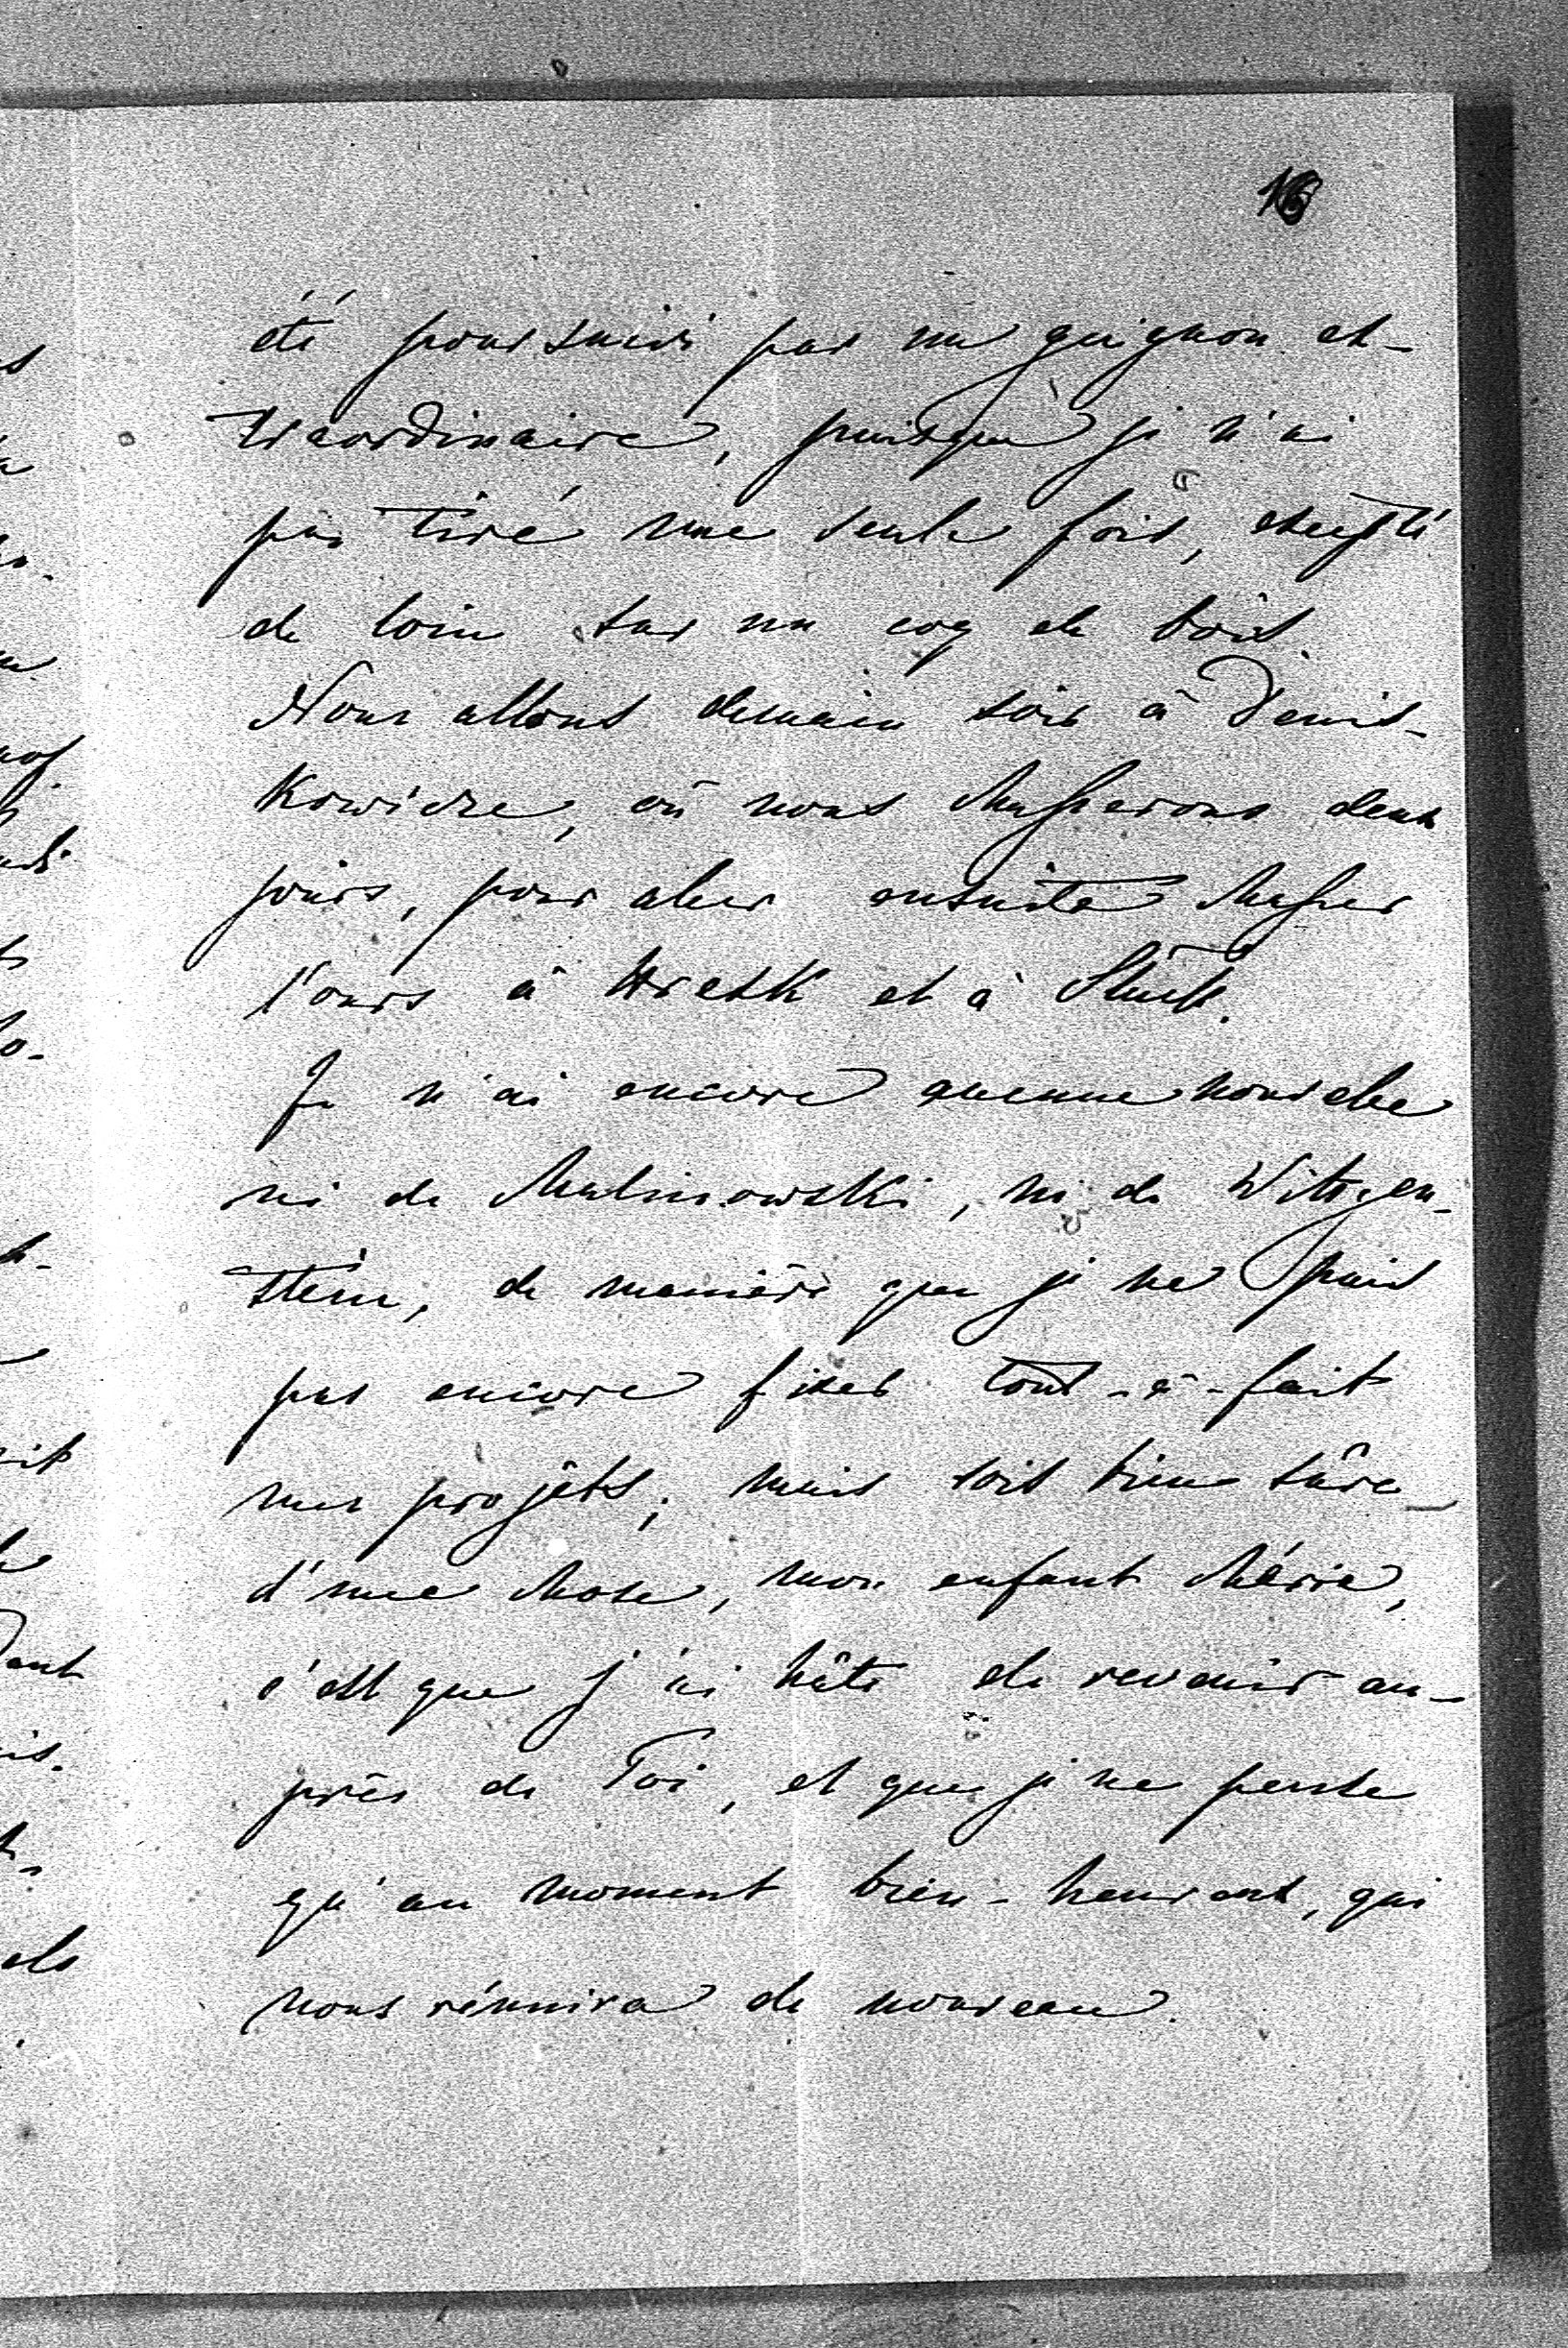 16
été poursuivi par un guignon ex-
traordinaire, puisque je n'ai
pas tiré une seule fois, excepté
de loin sur un coq de bois.
Nous allons demain soir à Denis-
kowicze, où nous chasserons deux
jours, pour aller ensuite chasser
l'ours à Hresk et à Sluck.
Je n'ai encore aucune nouvelle
ni de Malinowski, ni de Wittgen-
stein, de manière que je ne puis
pas encore fixer tout-à-fait
mes projêts; mais sois bien sûre
d'une chose, mon enfant chérie,
c'est que j'ai hâte de revenir au-
près de Toi, et que je ne pense
qu'au moment bien-heureux, qui
nous réunira de nouveau.